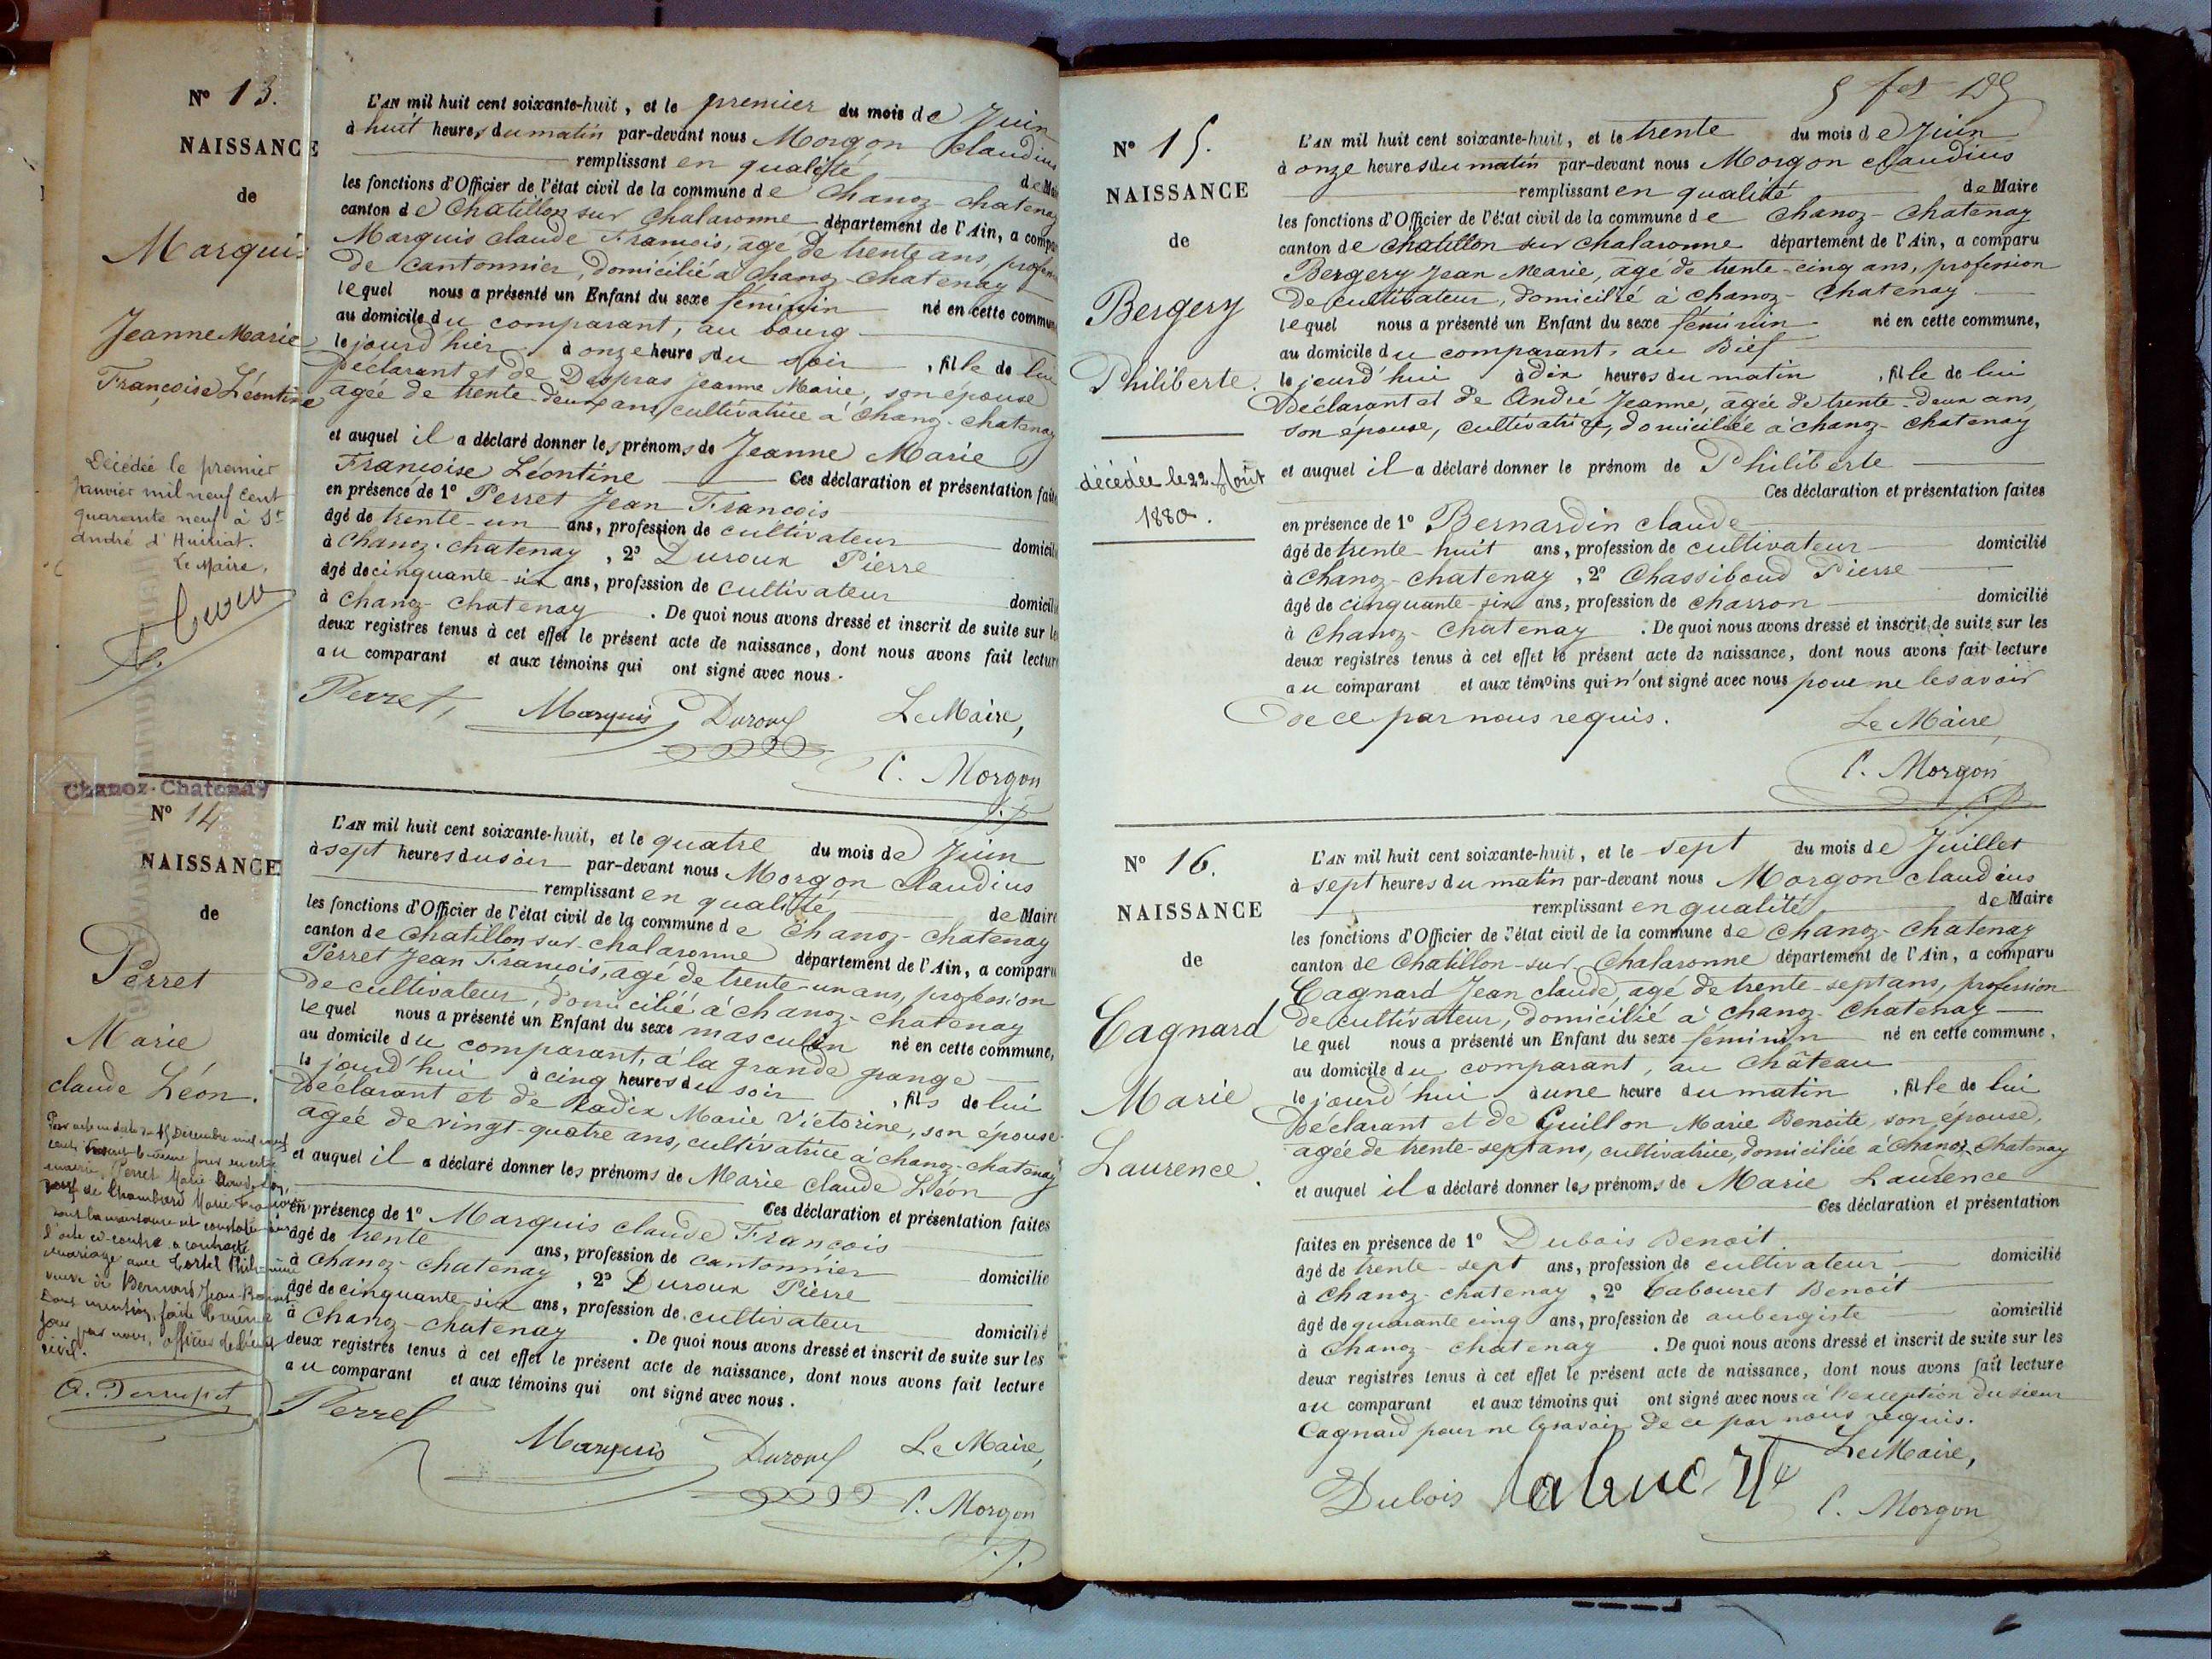 N° 13.
NAISSANCE
de
Marquis
Jeanne Marie
Françoise Léontine
Décédée le premier
Janvier mil neuf cent
quarante neuf à St
André d'Huiriat.
Le Maire,
L'AN mil huit cent soixante-huit, et le premier du mois de Juin
à huit heures du matin par-devant nous Morgon Claudius
remplissant en qualité de Mai
les fonctions d'Officier de l'état civil de la commune de Chanoz-Chatenay
canton de Chatillon sur Chalaronne département de l'Ain, a compa
Marquis Claude François, âgé de trente ans, profes
de cantonnier, domicilié à Chanoz-Chatenay
lequel nous a présenté un Enfant du sexe féminin né en cette commun
au domicile du comparant, au bourg
le jourd'hier à onze heures du soir, fille de lui
Déclarant et de Despras Jeanne Marie, son épouse
agée de trente-deux ans, cultivatrice à Chanoz-Chatenay
et auquel il a déclaré donner les prénoms de Jeanne Marie
Françoise Léontine Ces déclaration et présentation faite
en présence de 1° Perret Jean François
âgé de trente-un ans, profession de cultivateur domicili
à Chanoz-Chatenay, 2° Duroux Pierre
âgé de cinquante-six ans, profession de cultivateur domicili
à Chanoz-Chatenay. De quoi nous avons dressé et inscrit de suite sur les
deux registres tenus à cet effet le présent acte de naissance, dont nous avons fait lecture
au comparant et aux témoins qui ont signé avec nous.
Perret, Marquis Duroux Le Maire,
C. Morgon
Chanoz-Chatenay
N° 14
NAISSANCE
de
Perret
Marie
Claude Léon.
Par acte en date du 15 Décembre mil neuf
cent
mairie, Perret Marie Claude Léon,
veuf de Chambard Marie Françoise
dont la naissance est constatée par
l'acte ci-contre a contracté
mariage avec Cortel Philomène
veuve de Bernard Jean-Benoit
Dont mention faite le même
jour par nous, officier de l'état
civil.
L'AN mil huit cent soixante-huit, et le quatre du mois de Juin
à sept heures du soir par-devant nous Morgon Claudius
remplissant en qualité de Maire
les fonctions d'Officier de l'état civil de la commune de Chanoz-Chatenay
canton de Chatillon-sur-Chalaronne département de l'Ain, a comparu
Perret Jean François, agé de trente-un ans, profession
de cultivateur, domicilié à Chanoz-Chatenay
lequel nous a présenté un Enfant du sexe masculin né en cette commune,
au domicile du comparant, à la grande grange
le jourd'hui à cinq heures du soir, fils de lui
Déclarant et de Radix Marie Victorine, son épouse
agée de vingt-quatre ans, cultivatrice à Chanoz-Chatenay
et auquel il a déclaré donner les prénoms de Marie Claude Léon
Ces déclaration et présentation faites
en présence de 1° Marquis Claude François
âgé de trente ans, profession de cantonnier domicilié
à Chanoz-Chatenay, 2° Duroux Pierre
âgé de cinquante-six ans, profession de cultivateur domicilié
à Chanoz-Chatenay. De quoi nous avons dressé et inscrit de suite sur les
deux registres tenus à cet effet le présent acte de naissance, dont nous avons fait lecture
au comparant et aux témoins qui ont signé avec nous.
Perret
Marquis Duroux Le Maire,
C. Morgon
N° 15.
NAISSANCE
de
Bergery
Philiberte.
décédée le 22 Août
1880.
L'AN mil huit cent soixante-huit, et le trente du mois de Juin
à onze heures du matin par-devant nous Morgon Claudius
remplissant en qualité de Maire
les fonctions d'Officier de l'état civil de la commune de Chanoz-Chatenay
canton de Chatillon sur Chalaronne département de l'Ain, a comparu
Bergery Jean Marie, agé de trente-cinq ans, profession
de cultivateur, domicilié à Chanoz-Chatenay
lequel nous a présenté un Enfant du sexe féminin né en cette commune,
au domicile du comparant, au Bief
le jourd'hui à dix heures du matin, fille de lui
Déclarant et de André Jeanne, agée de trente-deux ans,
son épouse, cultivatrice, domiciliée à Chanoz-Chatenay
et auquel il a déclaré donner le prénom de Philiberte
Ces déclaration et présentation faites
en présence de 1° Bernardin Claude
âgé de trente-huit ans, profession de cultivateur domicilié
à Chanoz-Chatenay, 2° Chassiboud Pierre
âgé de cinquante-six ans, profession de charron domicilié
à Chanoz-Chatenay. De quoi nous avons dressé et inscrit de suite sur les
deux registres tenus à cet effet le présent acte de naissance, dont nous avons fait lecture
au comparant et aux témoins qui n'ont signé avec nous pour ne le savoir
de ce par nous requis. Le Maire,
C. Morgon
N° 16.
NAISSANCE
de
Cagnard
Marie
Laurence.
L'AN mil huit cent soixante-huit, et le sept du mois de Juillet
à sept heures du matin par-devant nous Morgon Claudius
remplissant en qualité de Maire
les fonctions d'Officier de l'état civil de la commune de Chanoz-Chatenay
canton de Chatillon-sur-Chalaronne département de l'Ain, a comparu
Cagnard Jean Claude, agé de trente-sept ans, profession
de cultivateur, domicilié à Chanoz-Chatenay
lequel nous a présenté un Enfant du sexe féminin né en cette commune,
au domicile du comparant, au Château
le jourd'hui à une heure du matin, fille de lui
Déclarant et de Guillon Marie Benoite, son épouse,
agée de trente-sept ans, cultivatrice, domiciliée à Chanoz-Chatenay
et auquel il a déclaré donner les prénoms de Marie Laurence
Ces déclaration et présentation
faites en présence de 1° Dubois Benoit
âgé de trente-sept ans, profession de cultivateur domicilié
à Chanoz-Chatenay, 2° Cabouret Benoit
âgé de quarante cinq ans, profession de aubergiste domicilié
à Chanoz-Chatenay. De quoi nous avons dressé et inscrit de suite sur les
deux registres tenus à cet effet le présent acte de naissance, dont nous avons fait lecture
au comparant et aux témoins qui ont signé avec nous à l'exception du sieur
Cagnard pour ne le savoir de ce par nous requis.
Le Maire,
Dubois
C. Morgon